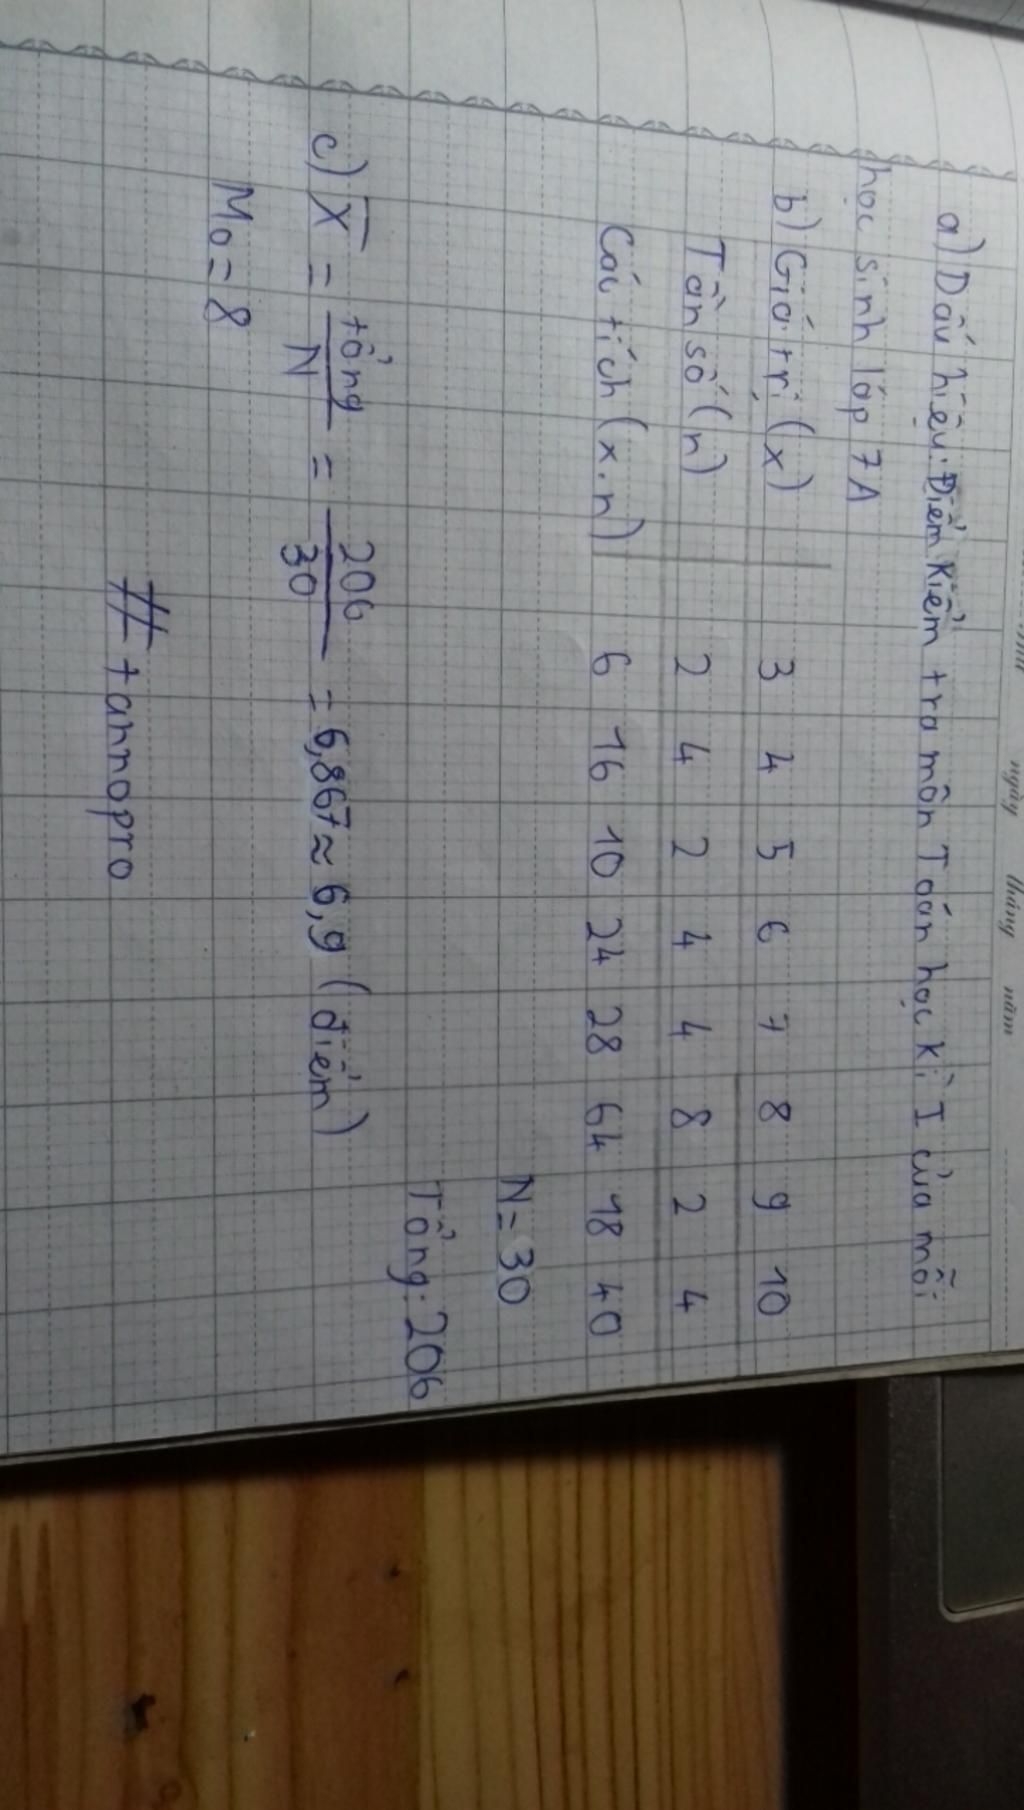 ngày tháng năm
a) Dấu hiệu: Điểm kiểm tra môn Toán học kì I của mỗi
học sinh lớp 7A
b) Giá trị (x) 3 4 5 6 7 8 9 10
Tần số (n) 2 4 2 4 4 8 2 4
Các tích (x.n) 6 16 10 24 28 64 18 40
N = 30
Tổng: 206
c) X̅ = tổng/N = 206/30 = 6,867 ≈ 6,9 (điểm)
M₀ = 8
# tannopro